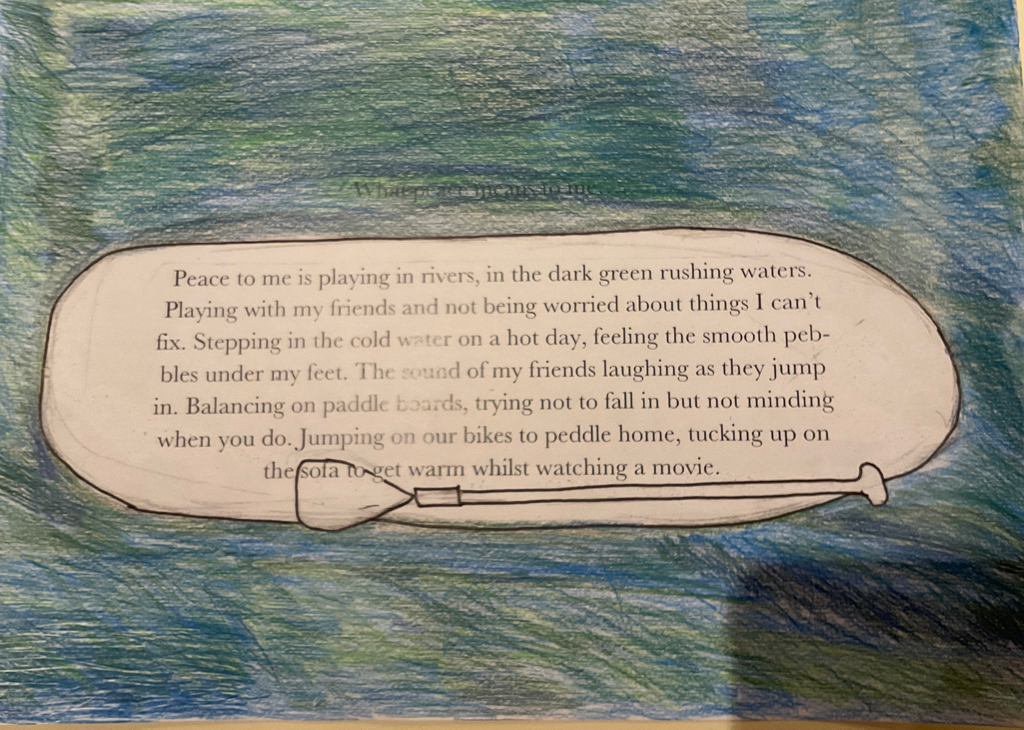 What peace means to me.
Peace to me is playing in rivers, in the dark green rushing waters.
Playing with my friends and not being worried about things I can't
fix. Stepping in the cold water on a hot day, feeling the smooth peb-
bles under my feet. The sound of my friends laughing as they jump
in. Balancing on paddle boards, trying not to fall in but not minding
when you do. Jumping on our bikes to peddle home, tucking up on
the sofa to get warm whilst watching a movie.